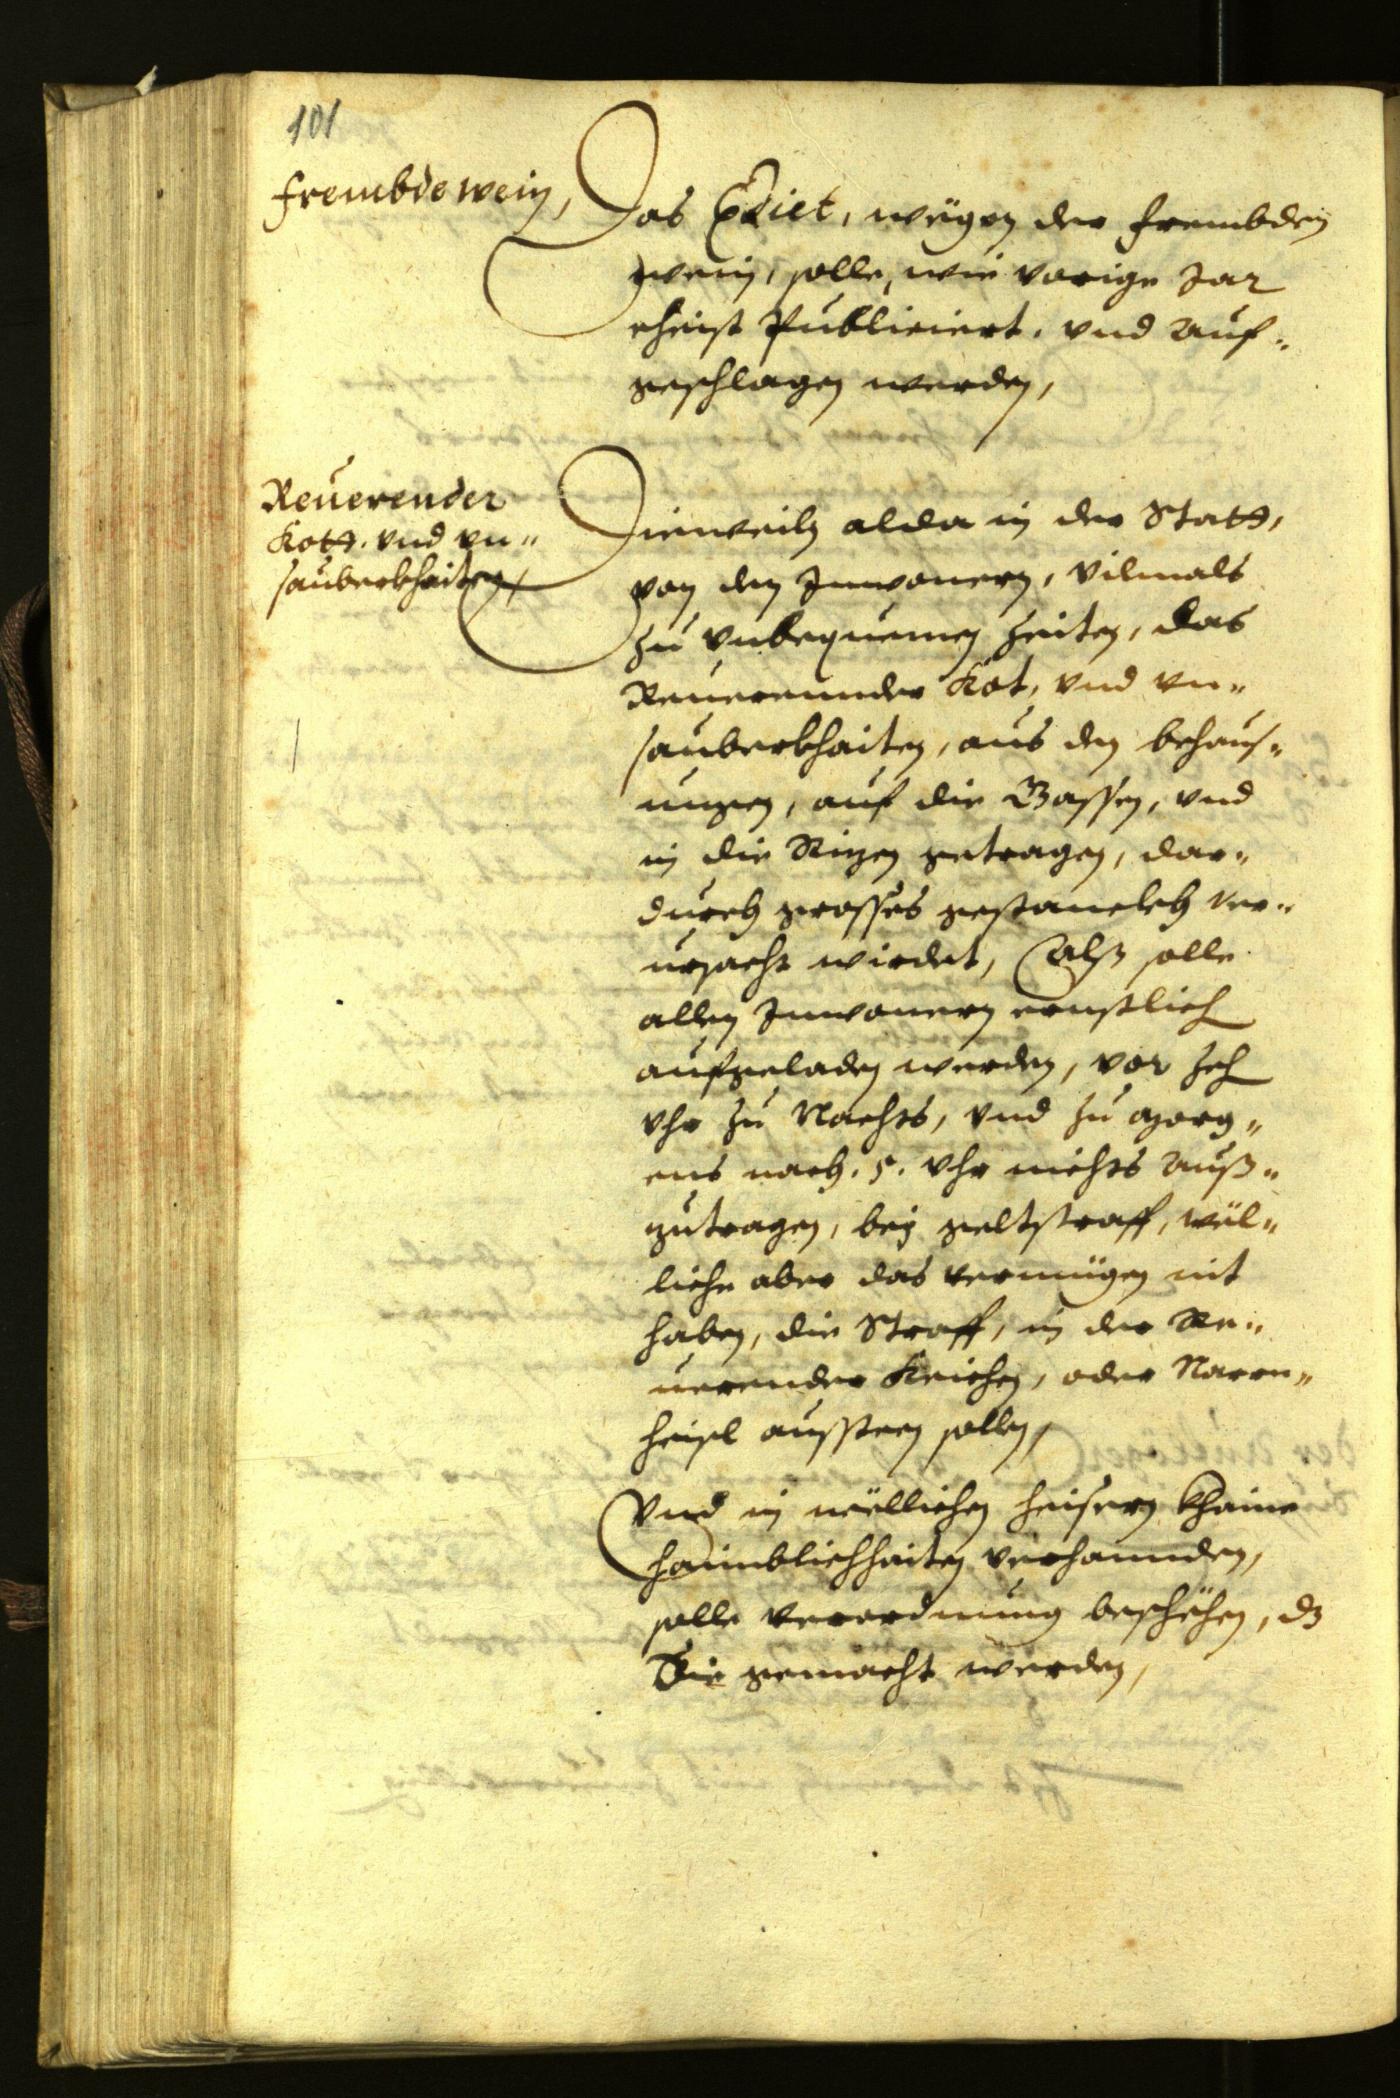 101
frembde wein,
Das Edict, wegen der frembden
wein, solle, wie vorige Jar
eheist Publiciert, vnd Auf„
geschlagen werden,
Reuerender
Kott, vnd vn„
sauberkhaiten,
Dieweiln alda in der Statt,
von den Innwonern, vilmals
zu vnbequemen Zeiten, das
Reuerennder Kot, vnd vn„
sauberkhaiten, aus den behaus„
ungen, auf die Gassen, vnd
in die Ritzen getragen, dar„
durch grosses gestanckh ver„
ursacht wirdet, Alß solle
allen Innwonern ernstlich
aufgeladen werden, vor
Vhr zu Nachts, vnd zu morg„
ens nach .5. Vhr nichts Auß„
zutragen, bey geltstraff, wel„
liche aber das vermügen nit
haben, die Straff, in der Re„
uerender Keichen, oder Narrn„
heisl aussteen sollen,
Vnd in wellichen heisern khaine
haimblichhaiten verhannden,
solle verordnung beschehen, dz
Die gemacht werden,